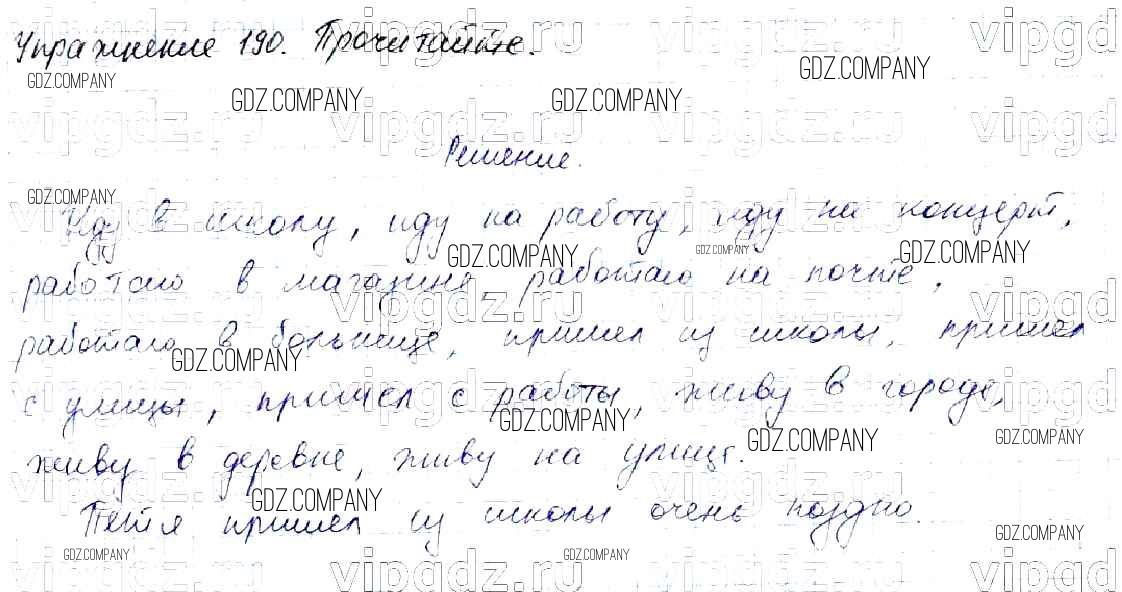 Упражнение 190. Прочитайте.
Решение.
Иду в школу, иду на работу, иду на концерт,
работаю в магазине, работаю на почте,
работаю в больнице, пришел из школы, пришел
с улицы, пришел с работы, живу в городе,
живу в деревне, живу на улице.
Петя пришел из школы очень поздно.
GDZ.COMPANY
vipgdz.ru